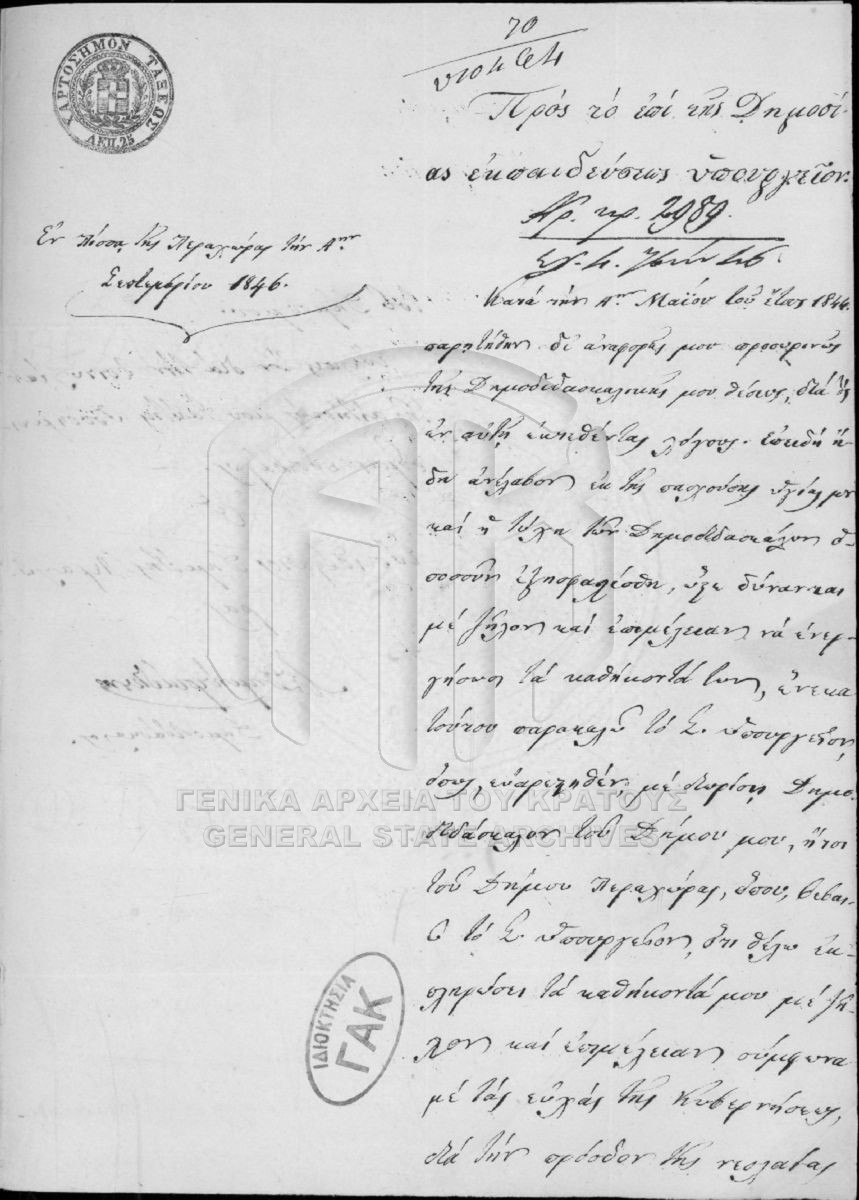 ΧΑΡΤΟΣΗΜΟΝ ΤΑΞΕΩΣ
ΛΕΠ. 25
70
Πρὸς τὸ ἐπὶ τῆς Δημοσί-
ας ἐκπαιδεύσεως ὑπουργεῖον.
Ἀρ. πρ. 2989.
Ἐν Πίσσᾳ τῆς Περαχώρας τὴν Αην
Σεπτεμβρίου 1846.
Κατὰ τὴν Αην Μαΐου τοῦ ἔτους 1844
παρῃτήθην δι' ἀναφορᾶς μου προσωρινῶς
τῆς Δημοδιδασκαλικῆς μου θέσεως, διὰ τοὺς
ἐν αὐτῇ ἐκτεθέντας λόγους. ἐπειδὴ ἤ-
δη ἀνέλαβον ἐκ τῆς πασχούσης ὑγείας μου
καὶ ἡ τύχη τῶν Δημοδιδασκάλων ὁ-
πωσοῦν ἐξησφαλίσθη, ὥστε δύνανται
μὲ ζῆλον καὶ ἐπιμέλειαν νὰ ἐνερ-
γήσωσι τὰ καθήκοντά των, ἕνεκα
τούτου παρακαλῶ τὸ Σ. Ὑπουργεῖον,
ὅπως εὐαρεστηθὲν, μὲ διορίσῃ Δημο-
διδάσκαλον τοῦ Δήμου μου, ἤτοι
τοῦ Δήμου Περαχώρας, ὅπου, βεβαι-
ῶ τὸ Σ. Ὑπουργεῖον, ὅτι θέλω ἐκ-
πληρώσει τὰ καθήκοντά μου μὲ ζῆ-
λον καὶ ἐπιμέλειαν σύμφωνα
μὲ τὰς εὐχὰς τῆς Κυβερνήσεως,
διὰ τὴν πρόοδον τῆς νεολαίας
ΓΕΝΙΚΑ ΑΡΧΕΙΑ ΤΟΥ ΚΡΑΤΟΥΣ
GENERAL STATE ARCHIVES
ΙΔΙΟΚΤΗΣΙΑ
ΓΑΚ